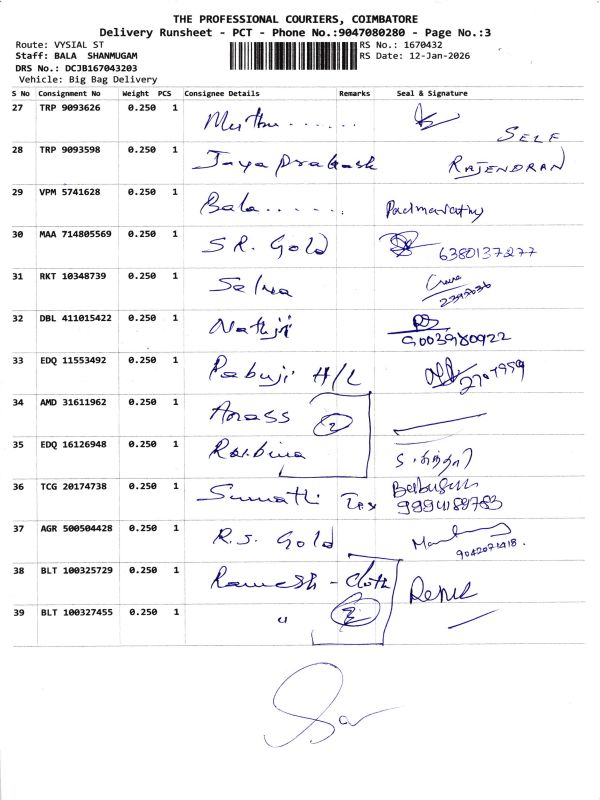 THE PROFESSIONAL COURIERS, COIMBATORE
Delivery Runsheet - PCT - Phone No.:9047080280 - Page No.:3
Route: VYSIAL ST RS No.: 1670432
Staff: BALA SHANMUGAM RS Date: 12-Jan-2026
DRS No.: DCJB167043203
Vehicle: Big Bag Delivery
S No Consignment No Weight PCS Consignee Details Remarks Seal & Signature
27 TRP 9093626 0.250 1 Muthu......
SELF
28 TRP 9093598 0.250 1 Jaya prakash RAJENDRAN
29 VPM 5741628 0.250 1 Bala...... Padmavathy
30 MAA 714805569 0.250 1 S R. Gold 6380137277
31 RKT 10348739 0.250 1 Selva
32 DBL 411015422 0.250 1 Nathji
33 EDQ 11553492 0.250 1 Pabuji H/L
34 AMD 31611962 0.250 1 Arass 2
35 EDQ 16126948 0.250 1
36 TCG 20174738 0.250 1 Sumathi Tex
37 AGR 500504428 0.250 1 R.S. Gold
38 BLT 100325729 0.250 1 Ramesh - Cloth
39 BLT 100327455 0.250 1 " 2